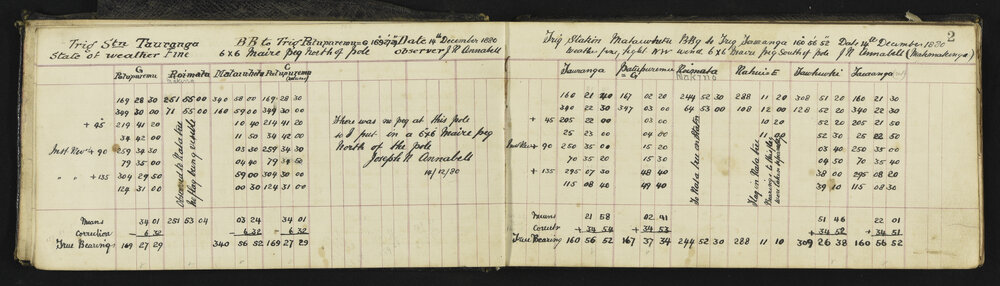 Trig Stn Tauranga BR to Trig Patupuremu = G Date 14th December 1880
State of weather Fine 6x6 Maire peg North of pole observer J R Annabell
G G
Patupuremu Roimata Mataiwhetu Patupuremu
169 28 30 251 55 00 340 58 00 169 28 30
349 30 00 71 55 00 160 59 00 349 30 00
+ 45 219 41 20 10 40 214 41 20
34 42 00 11 50 34 42 00
Inst Rev + 90 259 34 30 03 40 259 34 30
79 35 00 04 40 79 34 50
" " + 135 304 29 50 59 00 304 30 00
124 31 00 00 30 124 31 00
There was no peg at this pole
so I put in a 6x6 Maire peg
North of the pole
Joseph R Annabell
14/12/80
Means 34 01 251 53 04 03 24 34 01
correction - 6 32 - 6 32 - 6 32
True Bearing 169 27 29 340 56 52 169 27 29
2
Trig Station B to Trig Tauranga 160 56 52 Date 14th December 1880
Weather fine, light NW wind 6x6 Maire peg South of pole J R Annabell
Tauranga Patupuremu Roimata Tauranga
= G
160 21 40 167 02 20 244 52 30 288 11 20 308 51 20 160 21 30
340 22 30 347 03 00 64 53 00 108 12 00 128 52 20 340 22 30
+ 45 205 22 00 03 00 10 20 52 20 205 21 50
25 23 00 04 00 11 00 53 30 25 22 50
Inst Rev + 90 250 35 00 15 20 03 40 250 35 00
70 35 20 15 30 04 50 70 35 40
+ 135 295 07 30 48 40 38 00 295 08 20
115 08 40 49 40 39 10 115 08 30
Means 21 58 02 41 51 46 22 01
+ 34 54 + 34 53 + 34 52 + 34 51
True Bearing 160 56 52 167 37 34 244 52 30 288 11 10 309 26 38 160 56 52